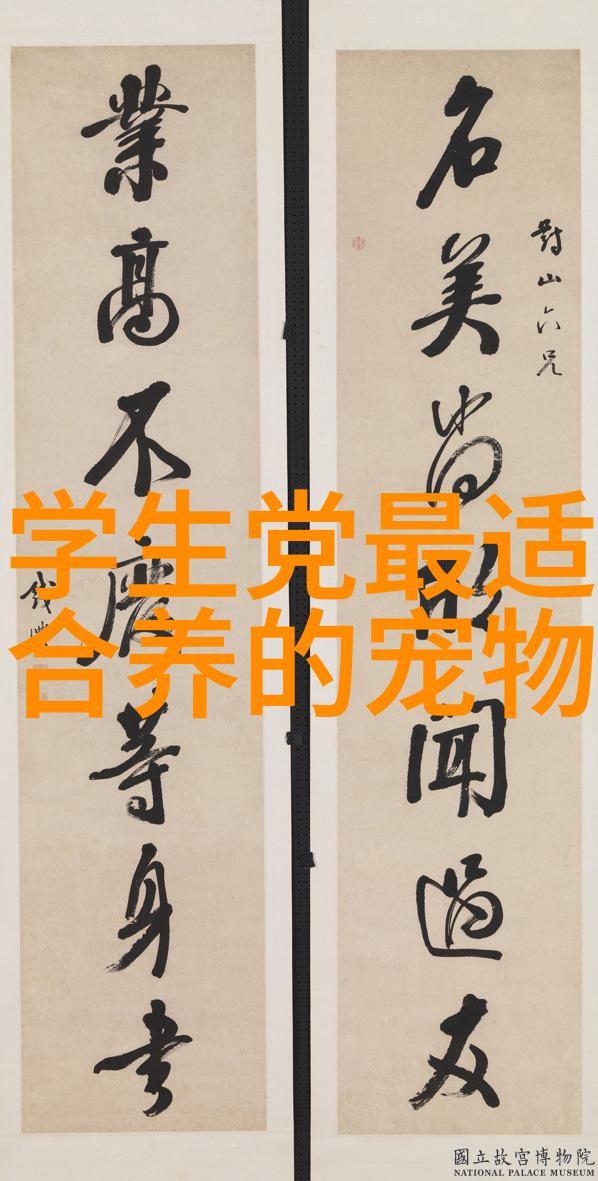 對山六兄
名美尚欣聞過友
業高不廢等身書
錢灃
学生党最适
合养的宠物
國立故宮博物院
NATIONAL PALACE MUSEUM